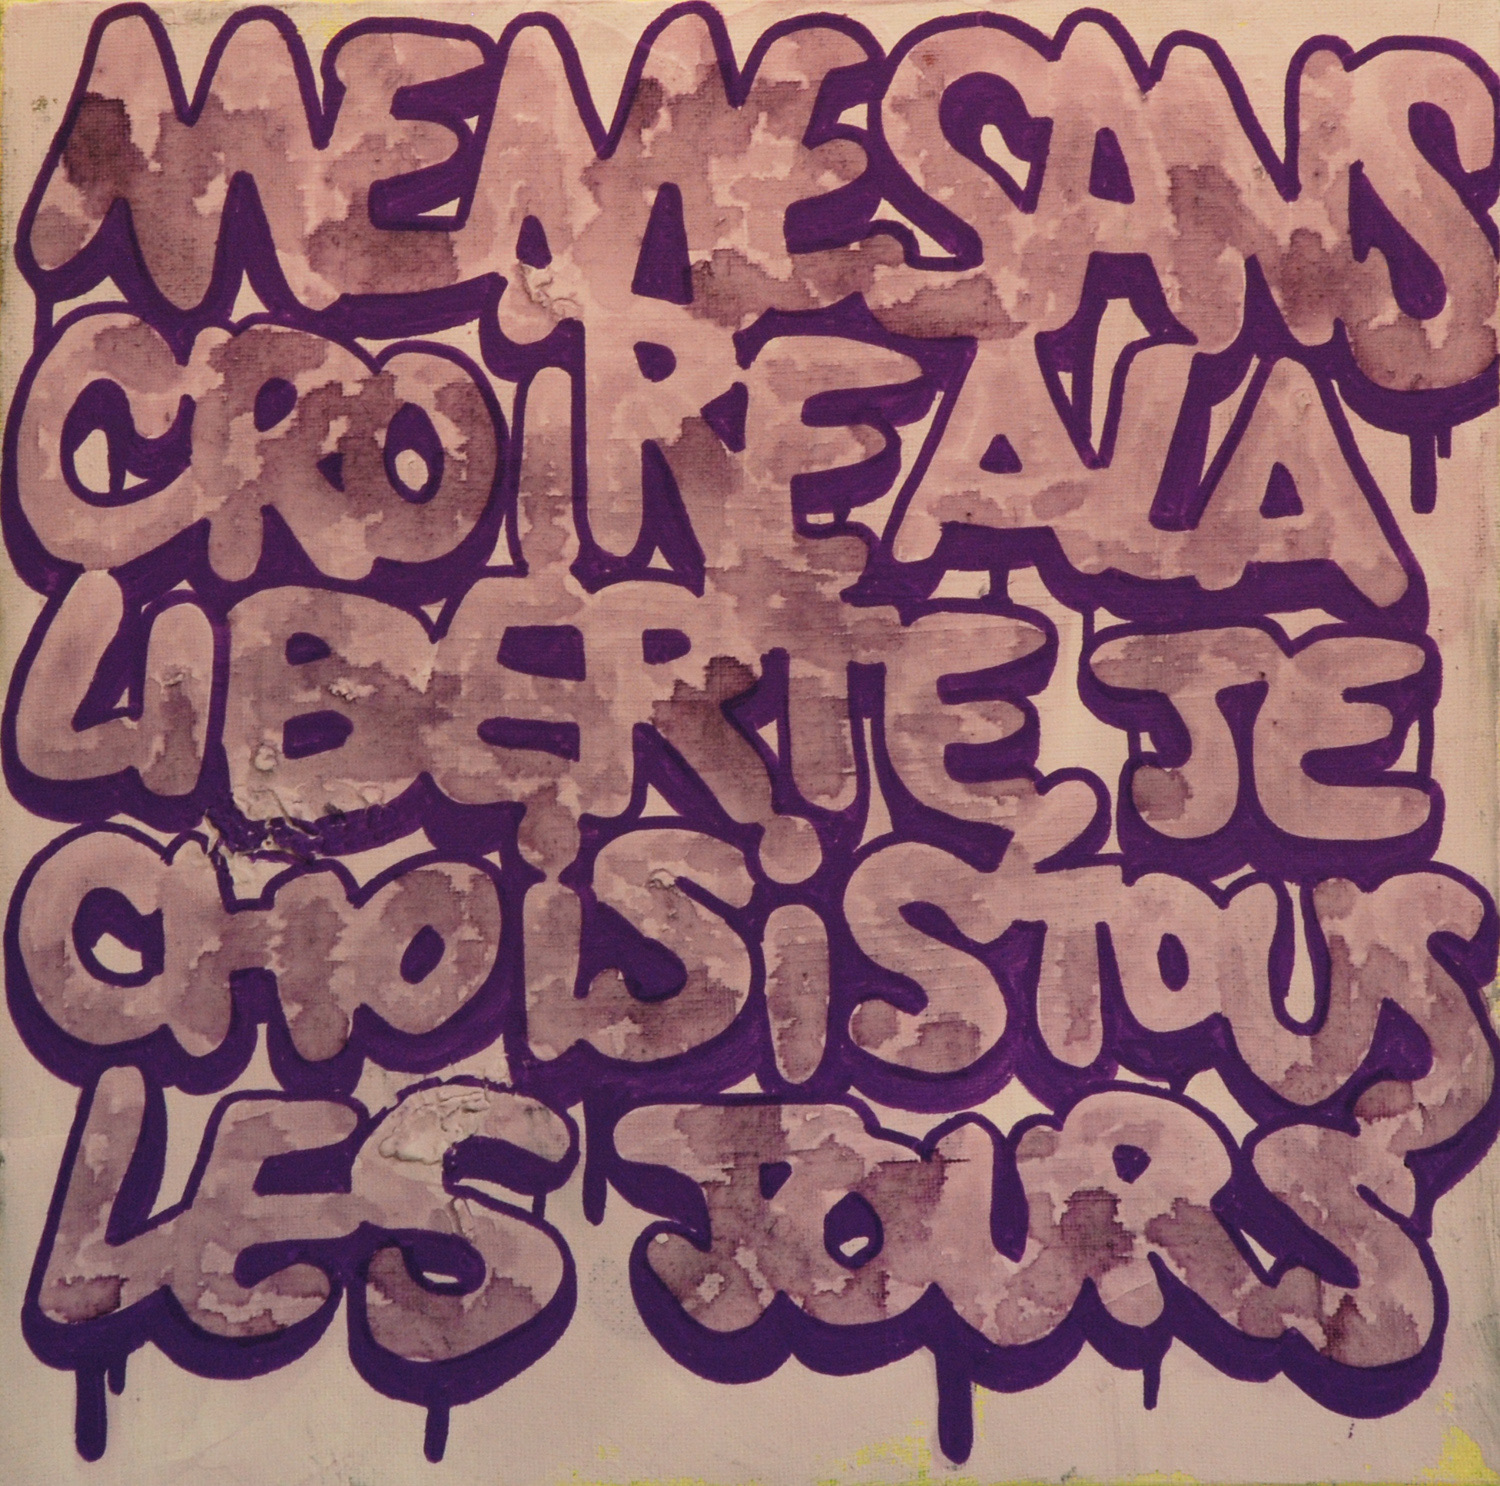 MEME SANS
CROIRE A LA
LIBERTE, JE
CHOISIS TOUS
LES JOURS